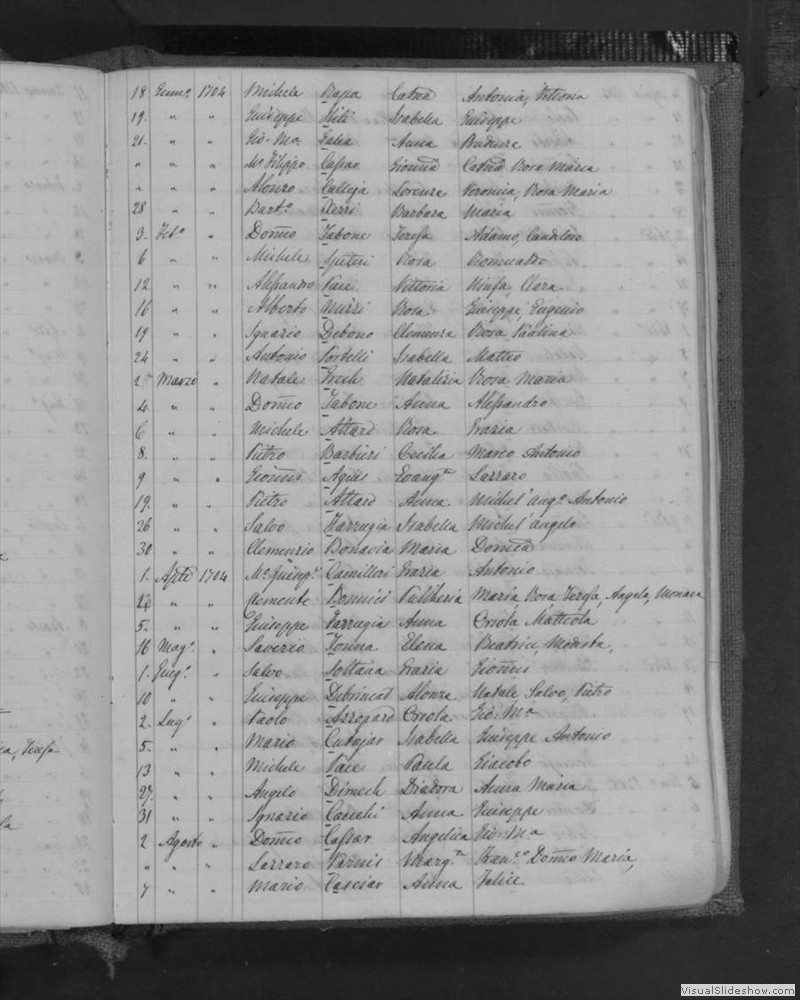 18 Genn.o 1704 Michele Papa Catna Antonia, Vittoria
19. " " Giuseppe Isabella Giuseppe
21. " " Gio: Ma. Galea Anna
" " " Ma Filippo Cassar Gionna Catna Rosa Maria
" " " Alonzo Calleja Lorenza Veronica, Rosa Maria
28 " " Barto. Xerri Barbara Maria
3. Feb.o " Domco Tabone Teresa Adamo, Candeloro
6 " " Michele Spiteri Rosa Romualdo
12 " " Alessandro Pace Vittoria Ninfa, Clara
16 " " Alberto Mizzi Rosa Giuseppe, Eugenio
19 " " Ignazio Debono Clemenza Rosa Paolina
24 " " Antonio Portelli Isabella Matteo
2 Marzo " Natale Grech Natalizia Rosa Maria
4. " " Domco Tabone Anna Alessandro
6 " " Michele Attard Rosa Grazia
8. " " Pietro Barbieri Cecilia Marco Antonio
9 " " Gionnes Agius Evang.ta Lazzaro
19. " " Pietro Attard Anna Michel' ang.o Antonio
26 " " Salvo Farrugia Isabella Michel' angelo
30 " " Clemenzio Bonavia Maria Domca
1. Aple 1704 Ma. Giusep.e Camilleri Grazia Antonio
24 " " Clemente Bonnici Pulcheria Maria Rosa, Teresa, Angela, Monaca
5. " " Giuseppe Farrugia Anna Orsola Matteola
16 Mag.o " Saverio Tonna Elena Beatrice, Modesta,
1. Giug.o " Salvo Soltana Grazia Gionnes
10 " " Giuseppe Debrincat Alonza Natale Salvo, Pietro
2. Lug.o " Paolo Azzopard Orsola Gio: Ma
5. " " Mario Cutajar Isabella Giuseppe Antonio
13 " " Michele Pace Paula Giacobo
27. " " Angelo Dimech Diadora Anna Maria
31 " " Ignazio Cacchi Anna Giuseppe
2 Agosto " Domco Cassar Angelica Gio: Ma
" " " Lazzaro Varnis Marg.ta Fran.co Domco Maria,
7 " " Mario Casciar Anna Felice
VisualSlideshow.com